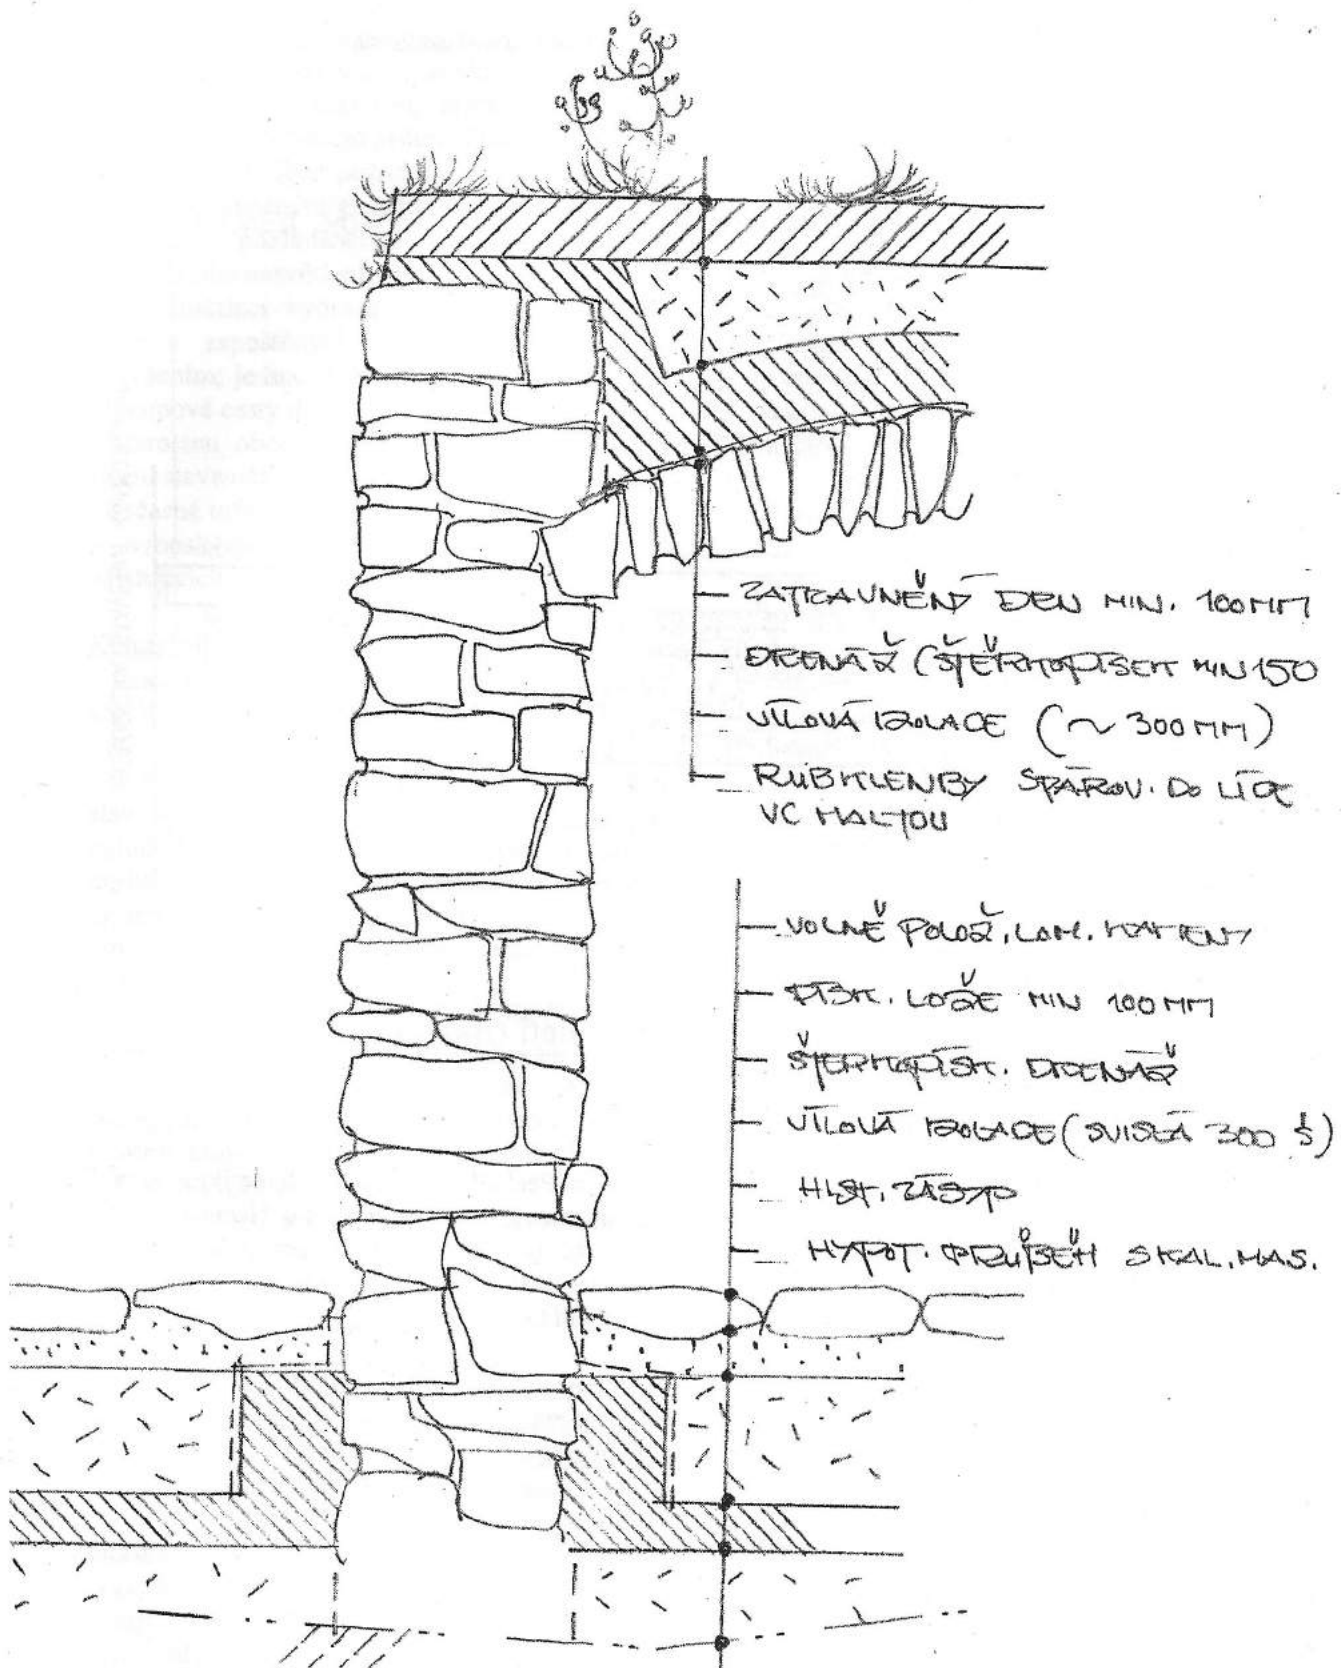 ZATRAVNĚNÝ DRN MIN. 100MM
DRENÁŽ (ŠTĚRKOPÍSEK MIN 150
JÍLOVÁ IZOLACE (~ 300MM)
RUB KLENBY SPÁROV. DO LÍCE
VC MALTOU
VOLNĚ POLOŽ. LOM. KAMENY
PÍSK. LOŽE MIN 100MM
ŠTĚRKOPÍSK. DRENÁŽ
JÍLOVÁ IZOLACE (SVISLÁ 300 Š)
HIST. ZÁSYP
HYPOT. PRŮBĚH SKAL. MAS.